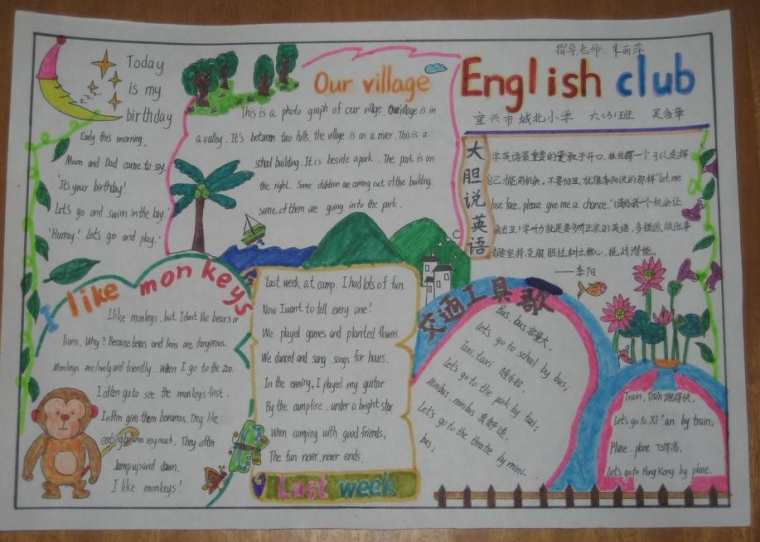 Today
is my
birthday
Early this morning,
Mum and Dad came to say
"It's your birthday!
Let's go and swim in the bay.
"Hurray! Let's go and play."
Our village
This is a photo graph of our village. Our village is in
a valley. It's between two hills. the village is on a river. This is a
school building. It is beside a park. The park is on
the right. Some children are coming out of the building.
some of them are going into the park.
指导老师:
English club
宜兴市城北小学
大胆说英语
学英语最重要的是敢于开口
let me
lose face, please give me a chance."
——李阳
I like monkeys
I like monkeys. but I don't like bears or
lions. Why? Because bears and lions are dangerous.
Monkeys are lovely and friendly. When I go to the zoo.
I often go to see the monkeys first.
I often give them bananas. They like
They often
jump up and down.
I like monkeys!
Last week, at camp. I had lots of fun
Now I want to tell every one!
We played games and planted flowers
We danced and sang songs for hours.
In the evening, I played my guitar
By the campfire. under a bright star
When camping with good friends,
The fun never, never ends.
Last week
交通工具歌
Bus, bus
Let's go to school by bus;
Taxi, taxi
Let's go to the park by taxi;
Minibus, minibus
Let's go to the theatre by mini-
bus;
Train, train 跑得快,
Let's go to Xi'an by train;
Plane, plane
Let's go to Hong Kong by plane.